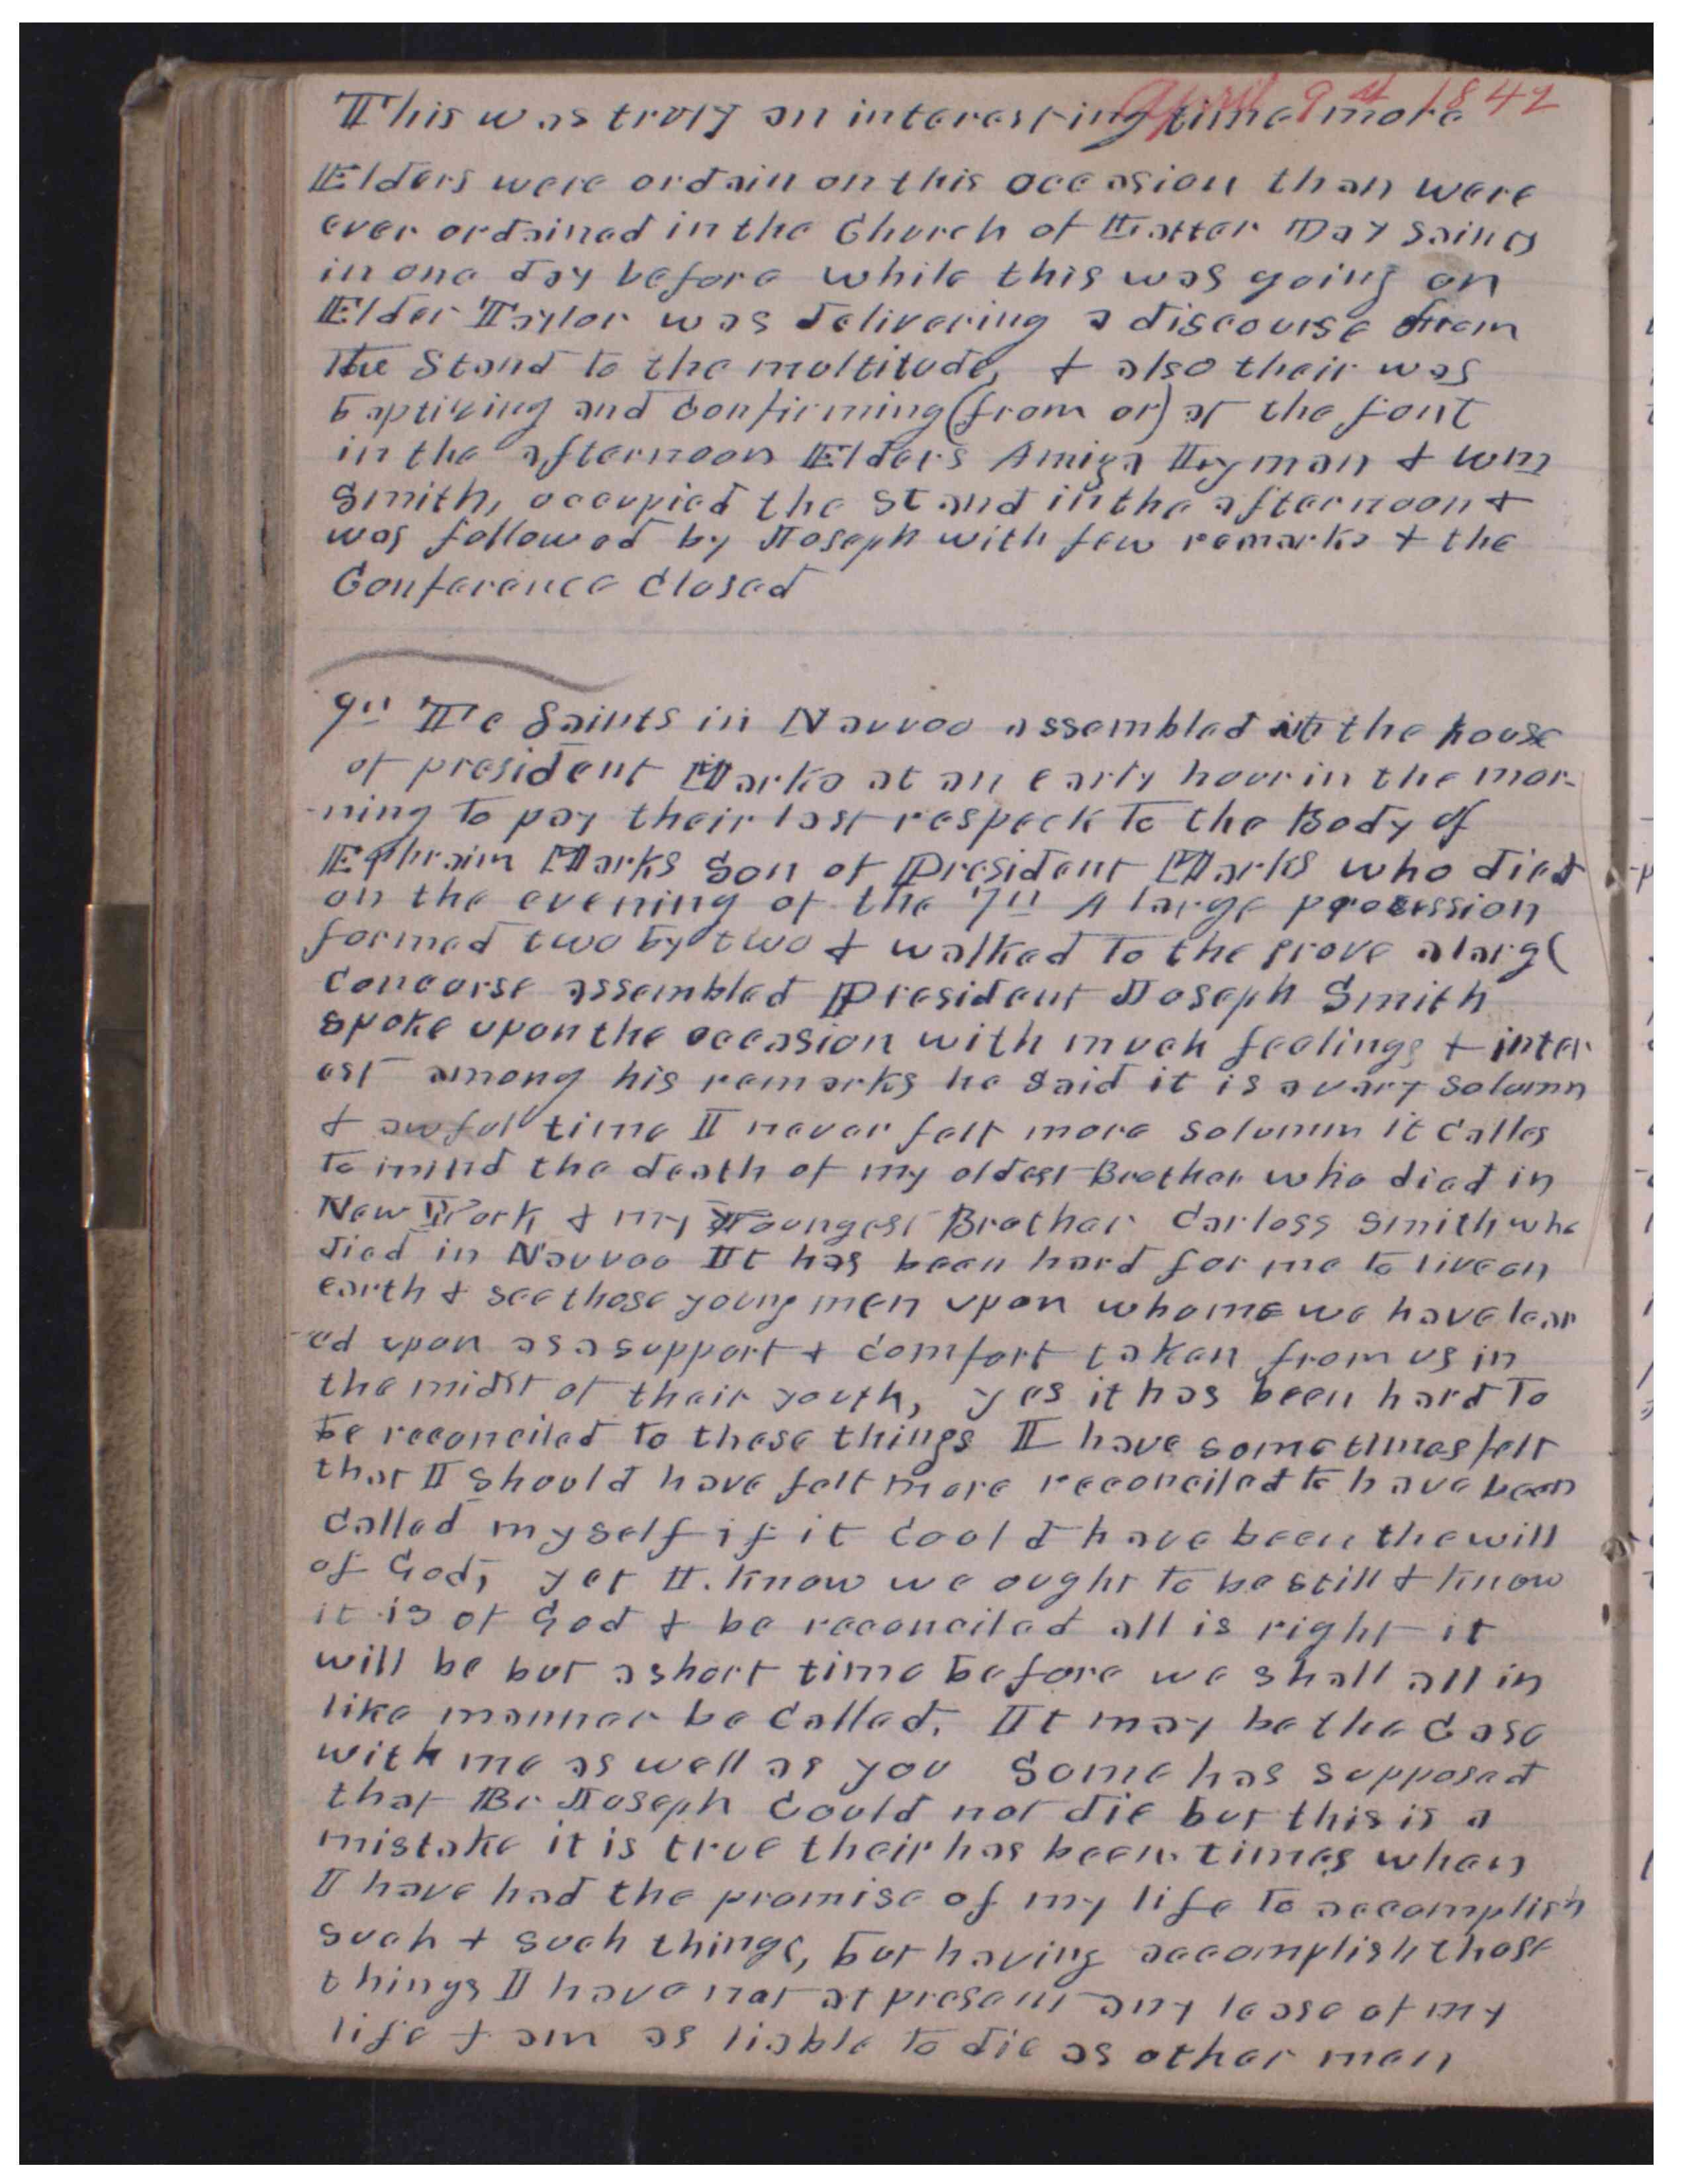 April 9th 1842
This was truly an interesting time more
Elders were ordain on this occasion than were
ever ordained in the Church of Latter Day Saints
in one day before while this was going on
Elder Taylor was delivering a discourse from
the Stand to the multitude, & also their was
baptizing and Confirming (from or) at the font
in the afternoon Elders Amiza Lyman & Wm
Smith, occupied the Stand in the afternoon &
was followed by Joseph with few remarks & the
Conference Closed
9th The Saints in Nauvoo assembled at the house
of president Marks at an early hour in the mor-
-ning to pay their last respeck to the Body of
Ephraim Marks Son of President Marks who died
on the evening of the 7th A large procession
formed two by two & walked to the grove a large
Concourse assembled President Joseph Smith
spoke upon the occasion with much feelings & inter
est among his remarks he said it is a vary solumn
& awful time I never felt more solumn it Calles
to mind the death of my oldest Brother who died in
New York & my Youngest Brother Carloss Smith who
died in Nauvoo It has been hard for me to live on
earth & see those young men upon whome we have lean
-ed upon as a support & Comfort taken from us in
the midst of their youth, yes it has been hard to
be reconciled to these things I have sometimes felt
that I should have felt more reconciled to have been
Called myself if it Could have been the will
of God, yet I. know we ought to be still & know
it is of God & be reconciled all is right it
will be but a short time before we shall all in
like manner be Called. It may be the Case
with me as well as you Some has supposed
that Br Joseph Could not die but this is a
mistake it is true their has been times when
I have had the promise of my life to accomplish
such & such things, but having accomplish those
things I have not at present any lease of my
life & am as liable to die as other men